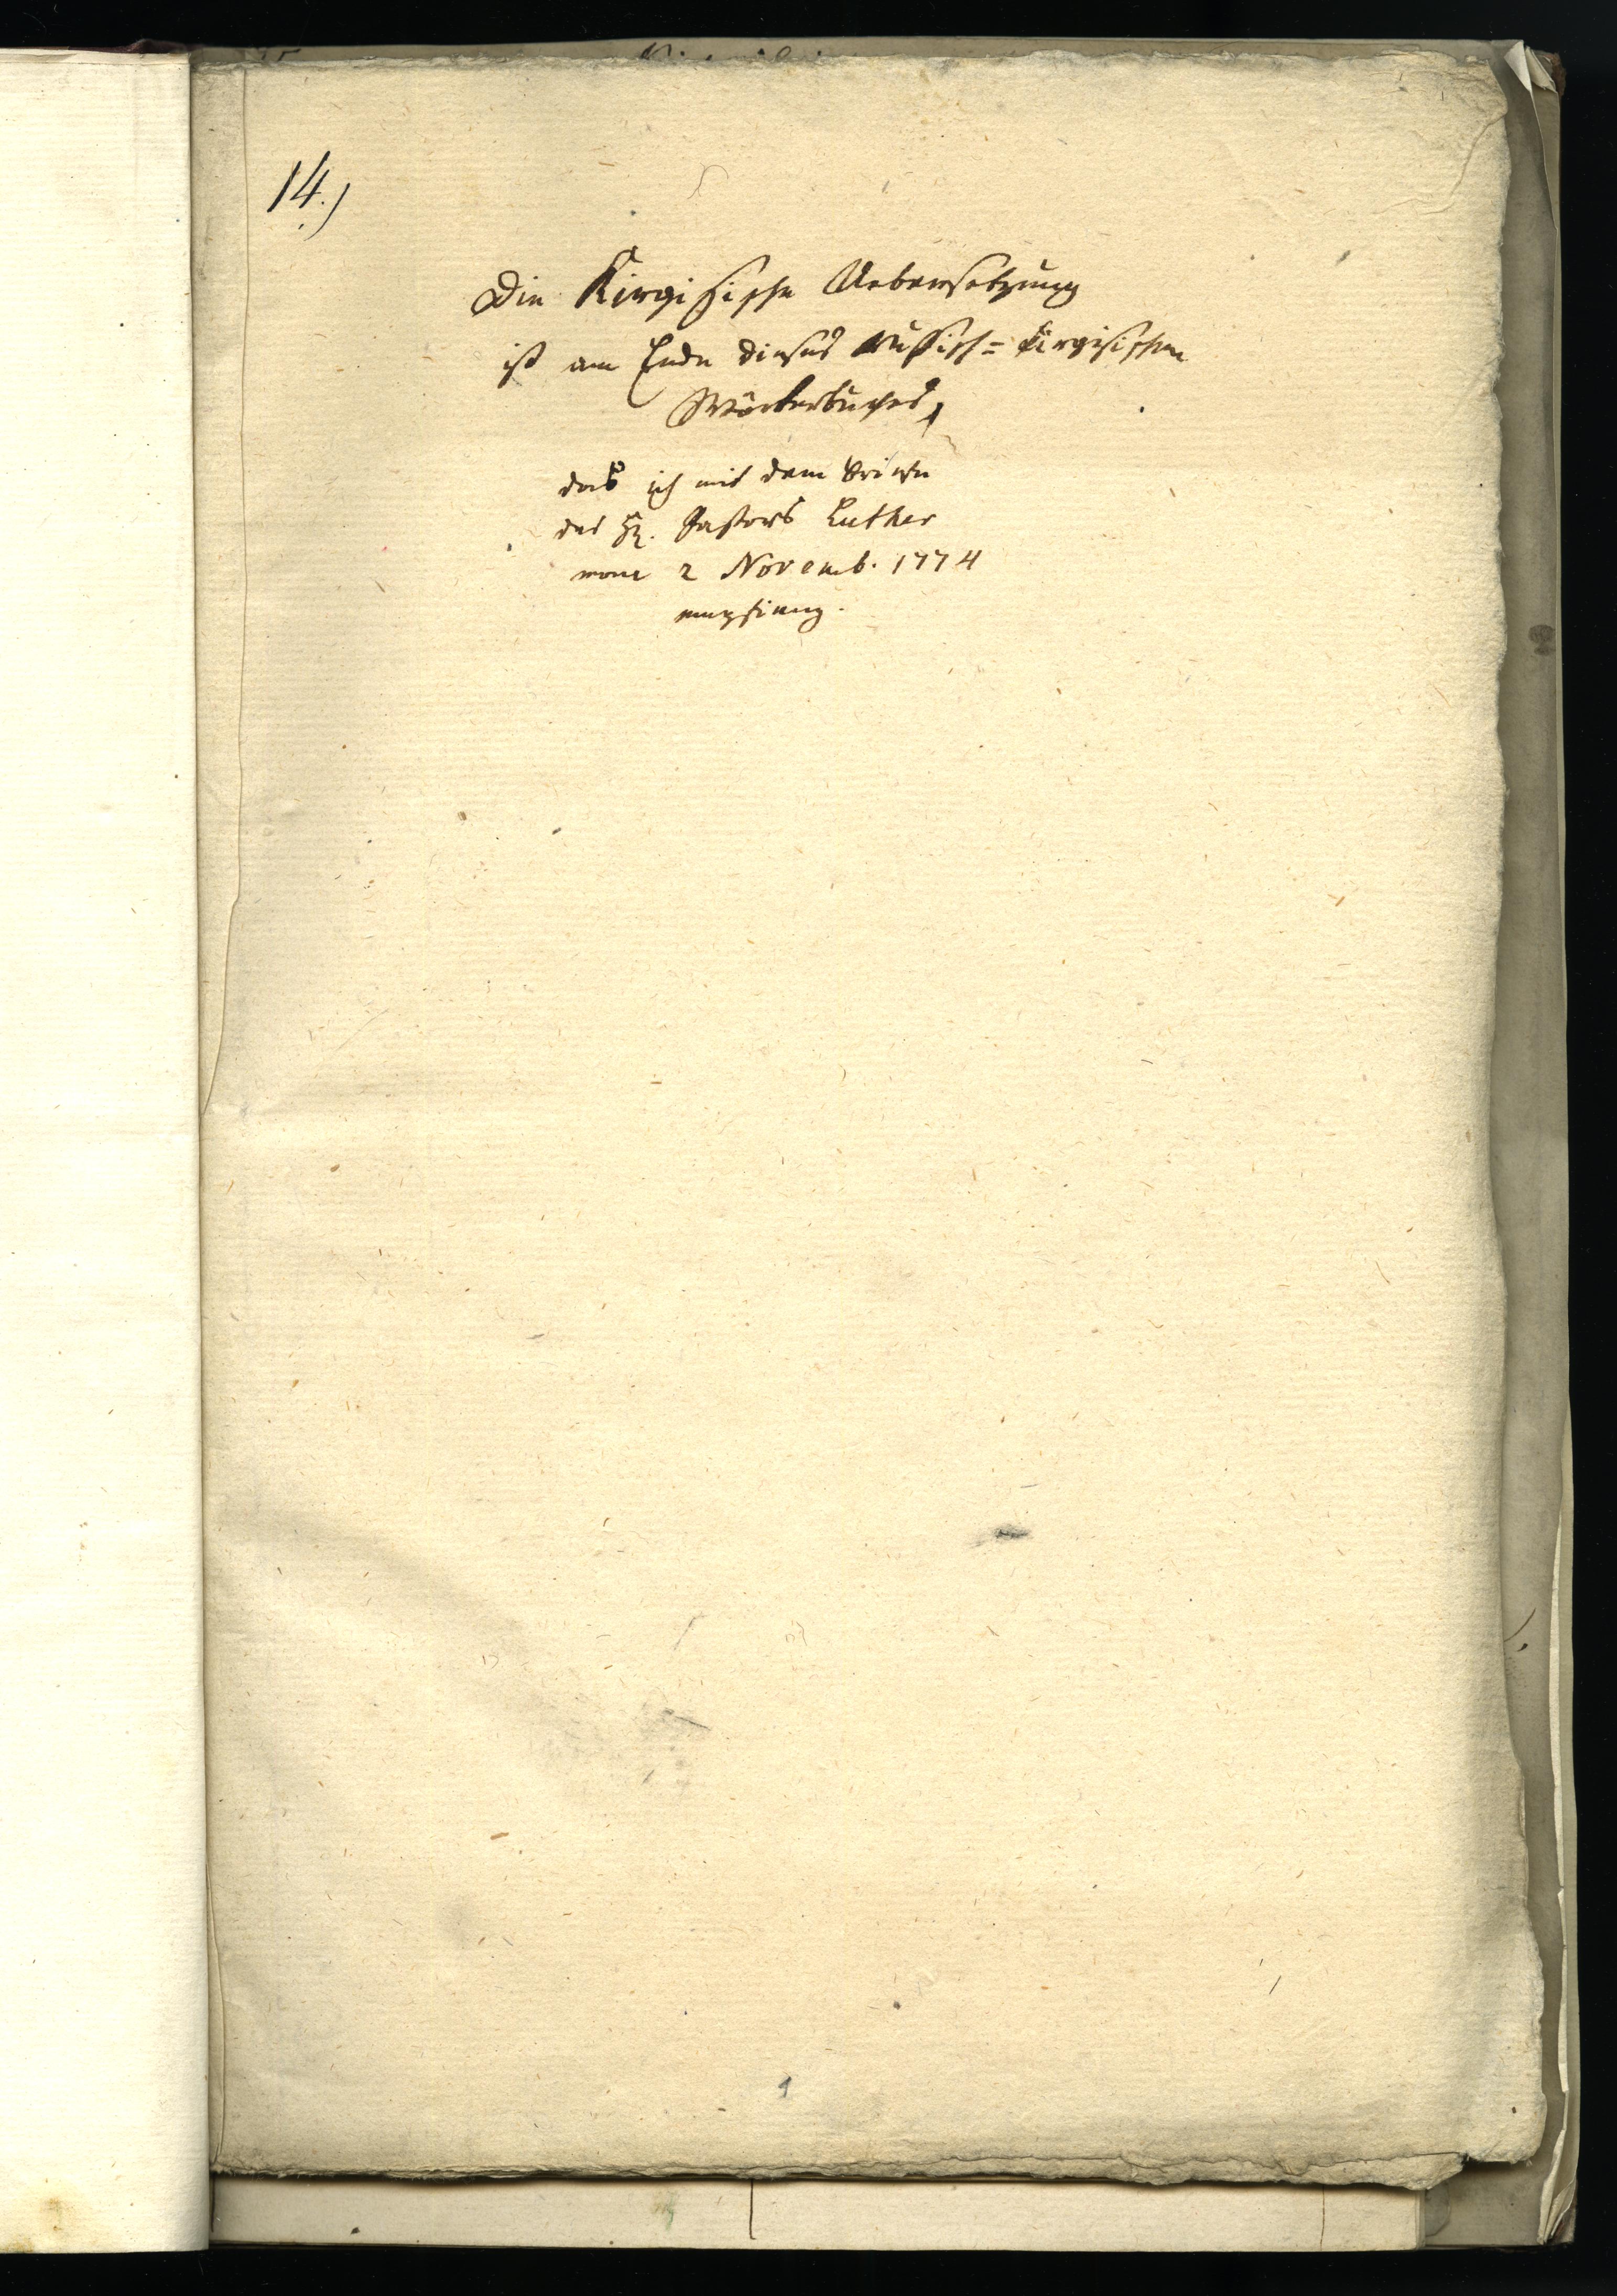 14.)
Die Kirgisische Uebersetzung
ist am Ende dieses Russisch=Kirgisischen
Wörterbuches,
das ich mit dem Briefe
des H. Pastors Luther
vom 2 Novemb. 1774
empfieng.